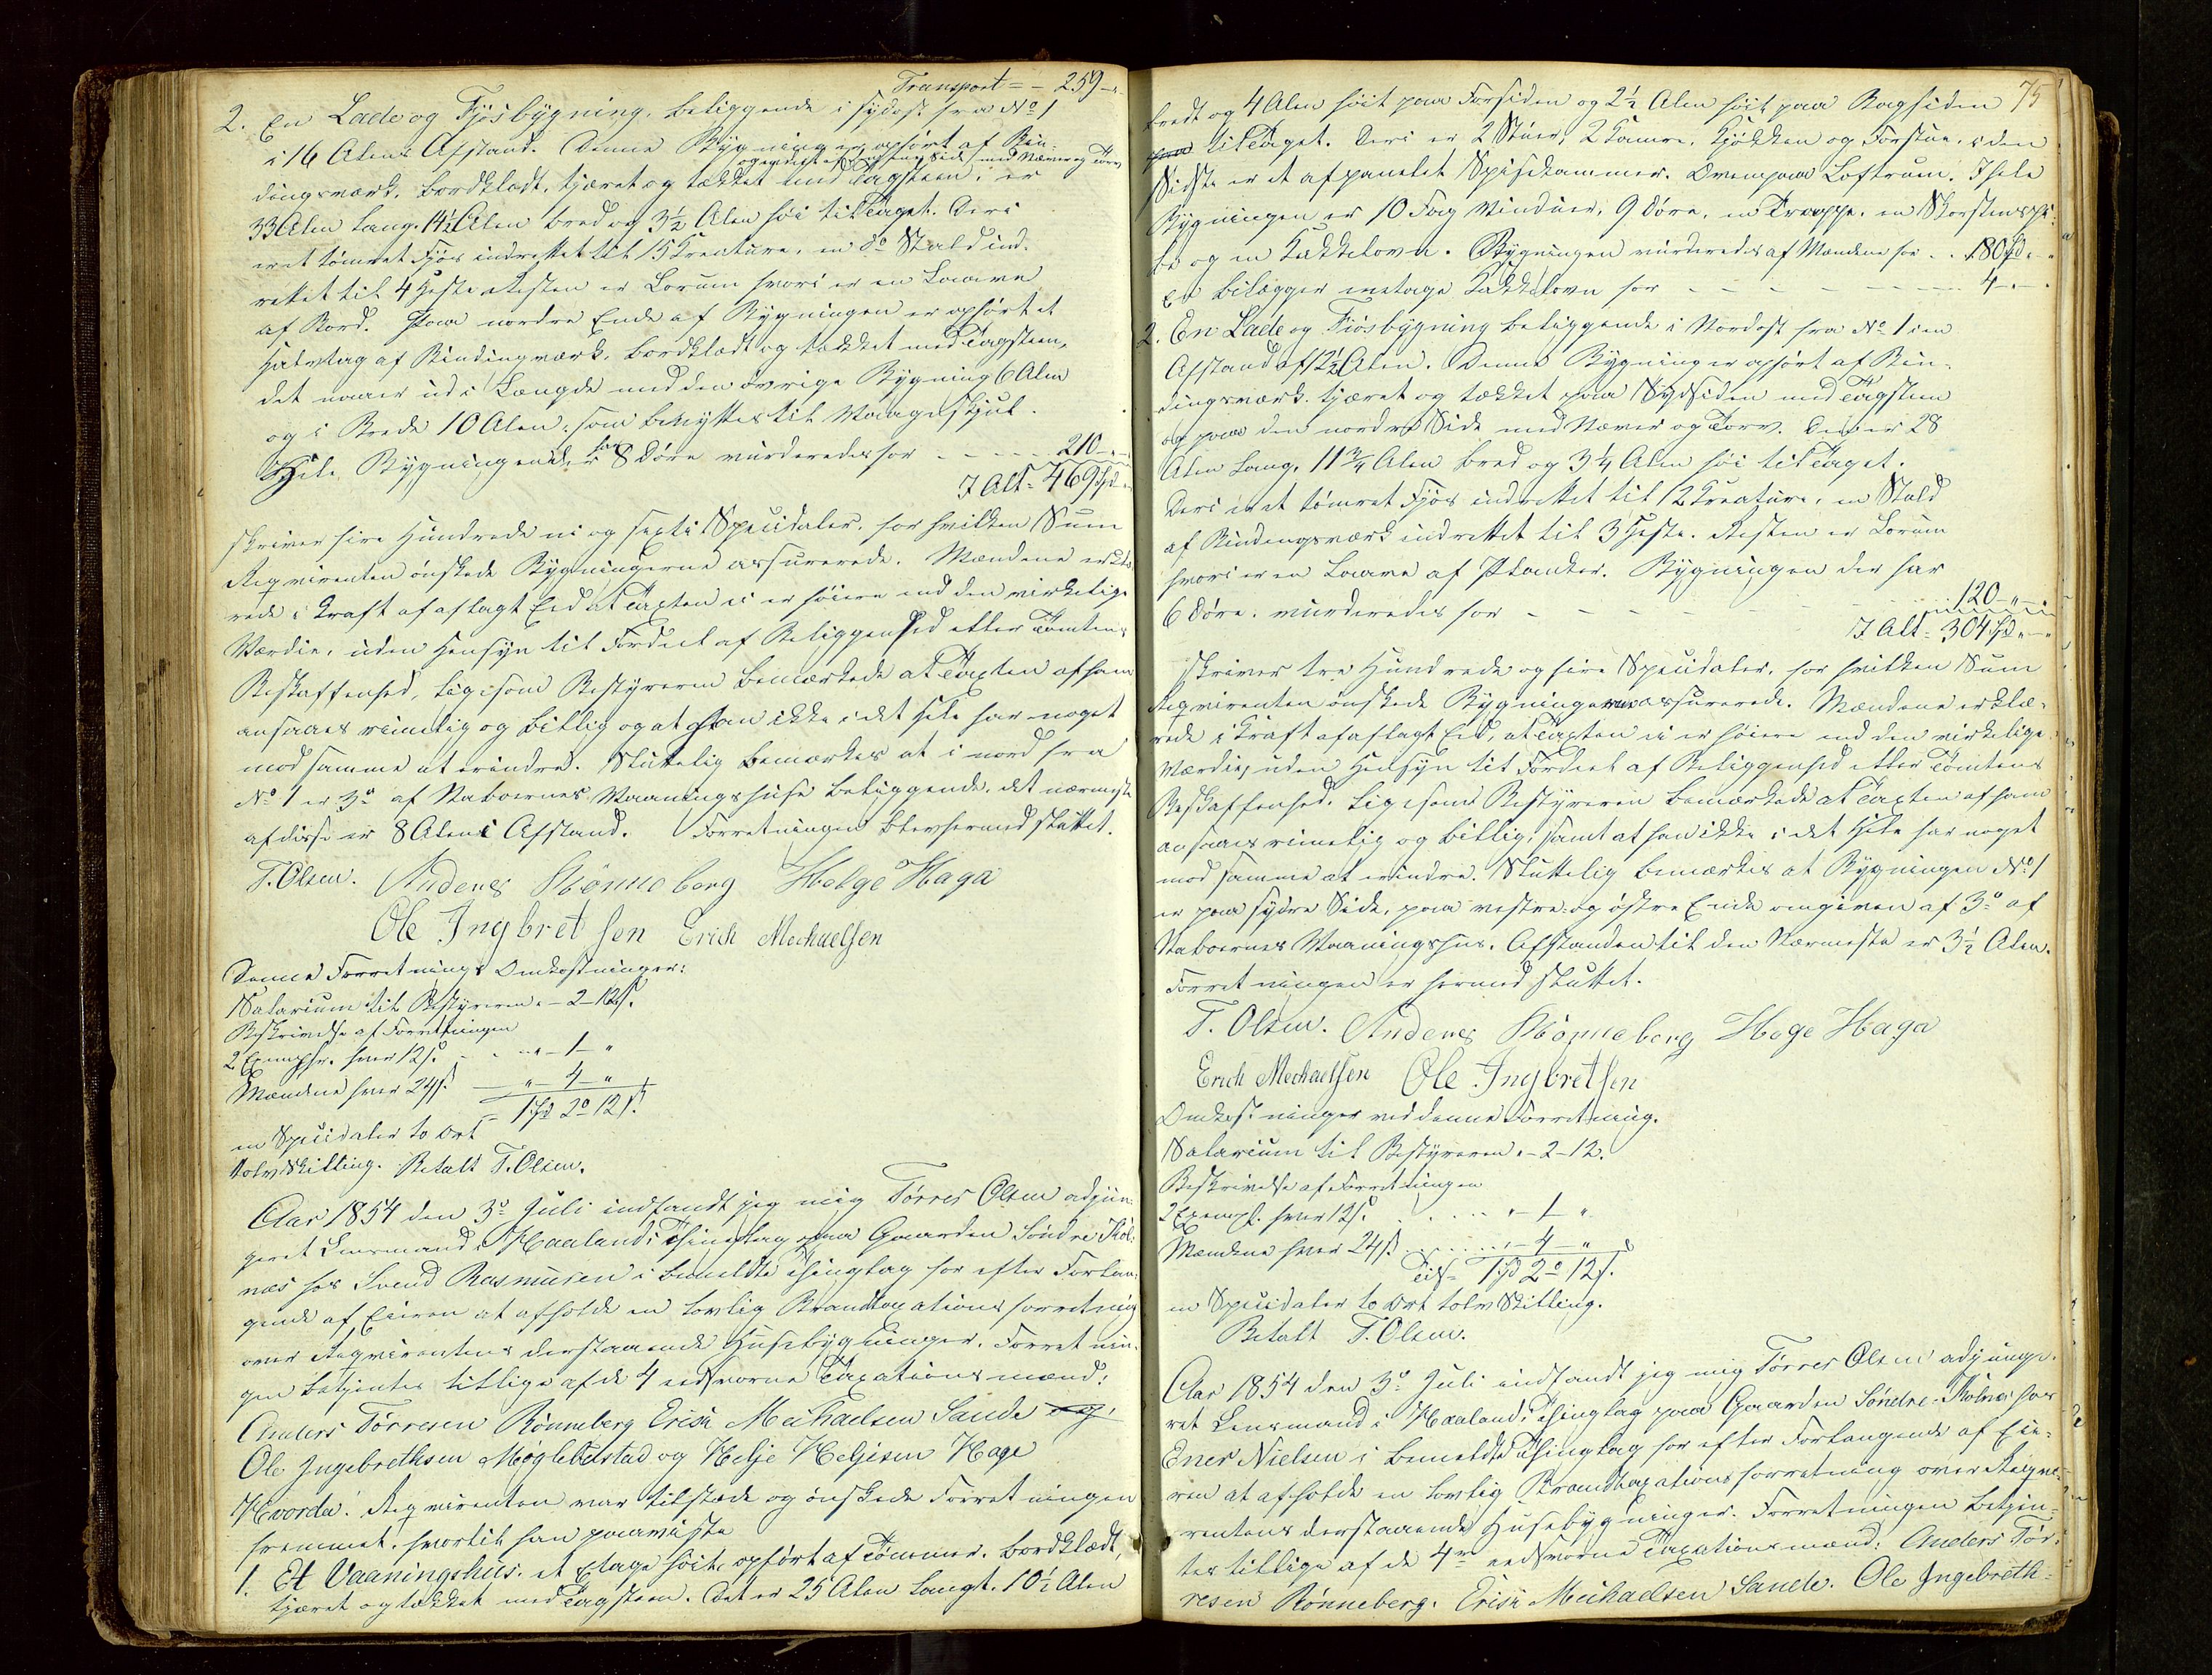 Transport = - 259-"-
2. En Lade og Fjøsbygning, beliggende i sydost fra No 1
i 16 Alens Afstand. Denne Bygning er opført af Bin-
dingsværk, bordklædt, tjæret og tækket med Tagsteen, er
33 Alen lang, 14½ Alen bred og 3½ Alen høi til Taget. Deri
er et tømret Fjøs indrettet til 15 Kreature, en do Stald ind-
rettet til 4 Heste. Resten er Lorum hvori er en Laave
af Bord. Paa nordre Ende af Bygningen er opført et
Halvtag af Bindingværk, bordklædt og tækket med Tagsteen,
det naaer ud i Længde med den øvrige Bygning 6 Alen
og i Brede 10 Alen, som benyttes til Vaagnskjul.
Hele Bygningen har 8 Døre vurderedes for - - - - 210-"-
I Alt = 469 Spd "
skriver fire Hundrede ni og sexti Speciedaler, for hvilken Sum
Reqvirenten ønskede Bygningerne assurerede. Mændene erklæ-
rede i Kraft af aflagt Eed at Taxten ei er høiere end den virkelige
Værdie, uden Hensyn til Fordeel af Beliggenhed eller Tomtens
Beskaffenhed, ligesom Bestyreren bemærkede at Taxten af ham
ansaaes rimelig og billig og at han ikke i det Hele har noget
mod samme at erindre. Sluttelig bemærkes at i nord fra
No 1 er 3de af Naboernes Vaaningshuse beliggende, det nærmeste
af disse er 8 Alens Afstand. Forretningen blev hermed sluttet.
T. Olsen. Anders Rönneberg Helge Haga
Ole Ingbretsen Erich Mechaelsen
Denne Forretnings Omkostninger:
Salarium til Bestyreren "-2-12 s.
Beskrivelse af Forretningen
2 Exempl. hver 12 s. - - "-1-"
Mændene hver 24 s. - "-4-"
= 1 Spd 2 o 12 s.
en Speciedaler to Ort
tolv Skilling. Betalt T. Olsen.
Aar 1854 den 3de Juli indfandt jeg mig Tørres Olsen adjun-
geret Lensmand i Haalands Thinglag paa Gaarden Søndre Kol-
næs hos Svend Rasmusen i bemeldte Thinglag for efter Forlan-
gende af Eieren at afholde en lovlig Brandtaxationsforretning
over Reqvirentens derstaaende Husebygninger. Forretnin-
gen betjentes tillige af de 4 eedsvorne Taxationsmænd:
Anders Tørresen Rönneberg Erich Meichaelsen Sande og
Ole Ingebrethsen Møglebustad og Helje Heljesen Hage
Hvorda! Reqvirenten var tilstæde og ønskede Forretningen
fremmet, hvortil han paaviste
1. Et Vaaningshus, et Etage høit, opført af Tømmer, bordklædt,
tjæret og tækket med Tagsteen. Det er 25 Alen langt, 10½ Alen
75
bredt og 4 Alen høit paa Forsiden og 2½ Alen høit paa Bagsiden
til Taget. Deri er 2 Stuer, 2 Kamre, Kjøkken og Forstue, i den
Sidste er et afpanelet Spisekammer. Ovenpaa Loftrum. I hele
Bygningen er 10 Fag Vinduer, 9 Døre, en Trappe, en Skorsteenspi-
be og en Kakkelovn. Bygningen vurderedes af Mændene for - - 180 Spd "-"
En bilægger enetages Kakkelovn for - - - - - - - 4-"-
2. En Lade og Fiøsbygning beliggende i Nordost fra No 1 i en
Afstand af 12½ Alen. Denne Bygning er opført af Bin-
dingsværk, tjæret og tækket paa Sydsiden med Tagsteen
og paa den nordre Side med Næver og Torv. Den er 28
Alen lang, 11¾ Alen bred og 3¼ Alen høi til Taget.
Deri er et tømret Fjøs indrettet til 12 Kreature, en Stald
af Bindingsværk indrettet til 3 Heste. Resten er Lorum
hvori er en Laave af Planker. Bygningen der har
6 Døre, vurderedes for - - - - - - - 120-"-
I Alt = 304 Spd "-"
skriver tre Hundrede og fire Speciedaler, for hvilken Sum
Reqvirenten ønskede Bygningerne assurerede. Mændene erklæ-
rede i Kraft af aflagt Eed, at Taxten ei er høiere end den virkelige
Værdie, uden Hensyn til Fordeel af Beliggenhed eller Tomtens
Beskaffenhed, ligesom Bestyreren bemærkede at Taxten af ham
ansaaes rimelig og billig, samt at han ikke i det Hele har noget
mod samme at erindre. Sluttelig bemærkes at Bygningen No 1
er paa søndre Side, paa vestre- og østre Ende omgiven af 3de af
Naboernes Vaaningshus. Afstanden til den Nærmeste er 3½ Alen.
Forretningen er hermed sluttet.
T. Olsen. Anders Rönneberg Hege Haga
Erich Mechaelsen Ole Ingbretsen
Omkostninger ved denne Forretning.
Salarium til Bestyreren "-2-12.
Beskrivelse af Forretningen
2 Exempl. hver 12 s. - - - - "-1-"
Mændene hver 24 s. - - - - "-4-"
Tils = 1 Spd 2 o 12 s.
en Speciedaler to Ort tolv Skilling.
Betalt T. Olsen.
Aar 1854 den 3de Juli indfandt jeg mig Tørres Olsen adjunge-
ret Lensmand i Haalands Thinglag paa Gaarden Søndre-Kolnæs hos
Ener Nielsen i bemeldte Thinglag for efter Forlangende af Eie-
ren at afholde en lovlig Brandtaxationsforretning over Reqvi-
rentens derstaaende Husebygninger. Forretningen betjen-
tes tillige af de 4re eedsvorne Taxationsmænd: Anders Tør-
resen Rönneberg. Erich Meichaelsen Sande. Ole Ingebreth-